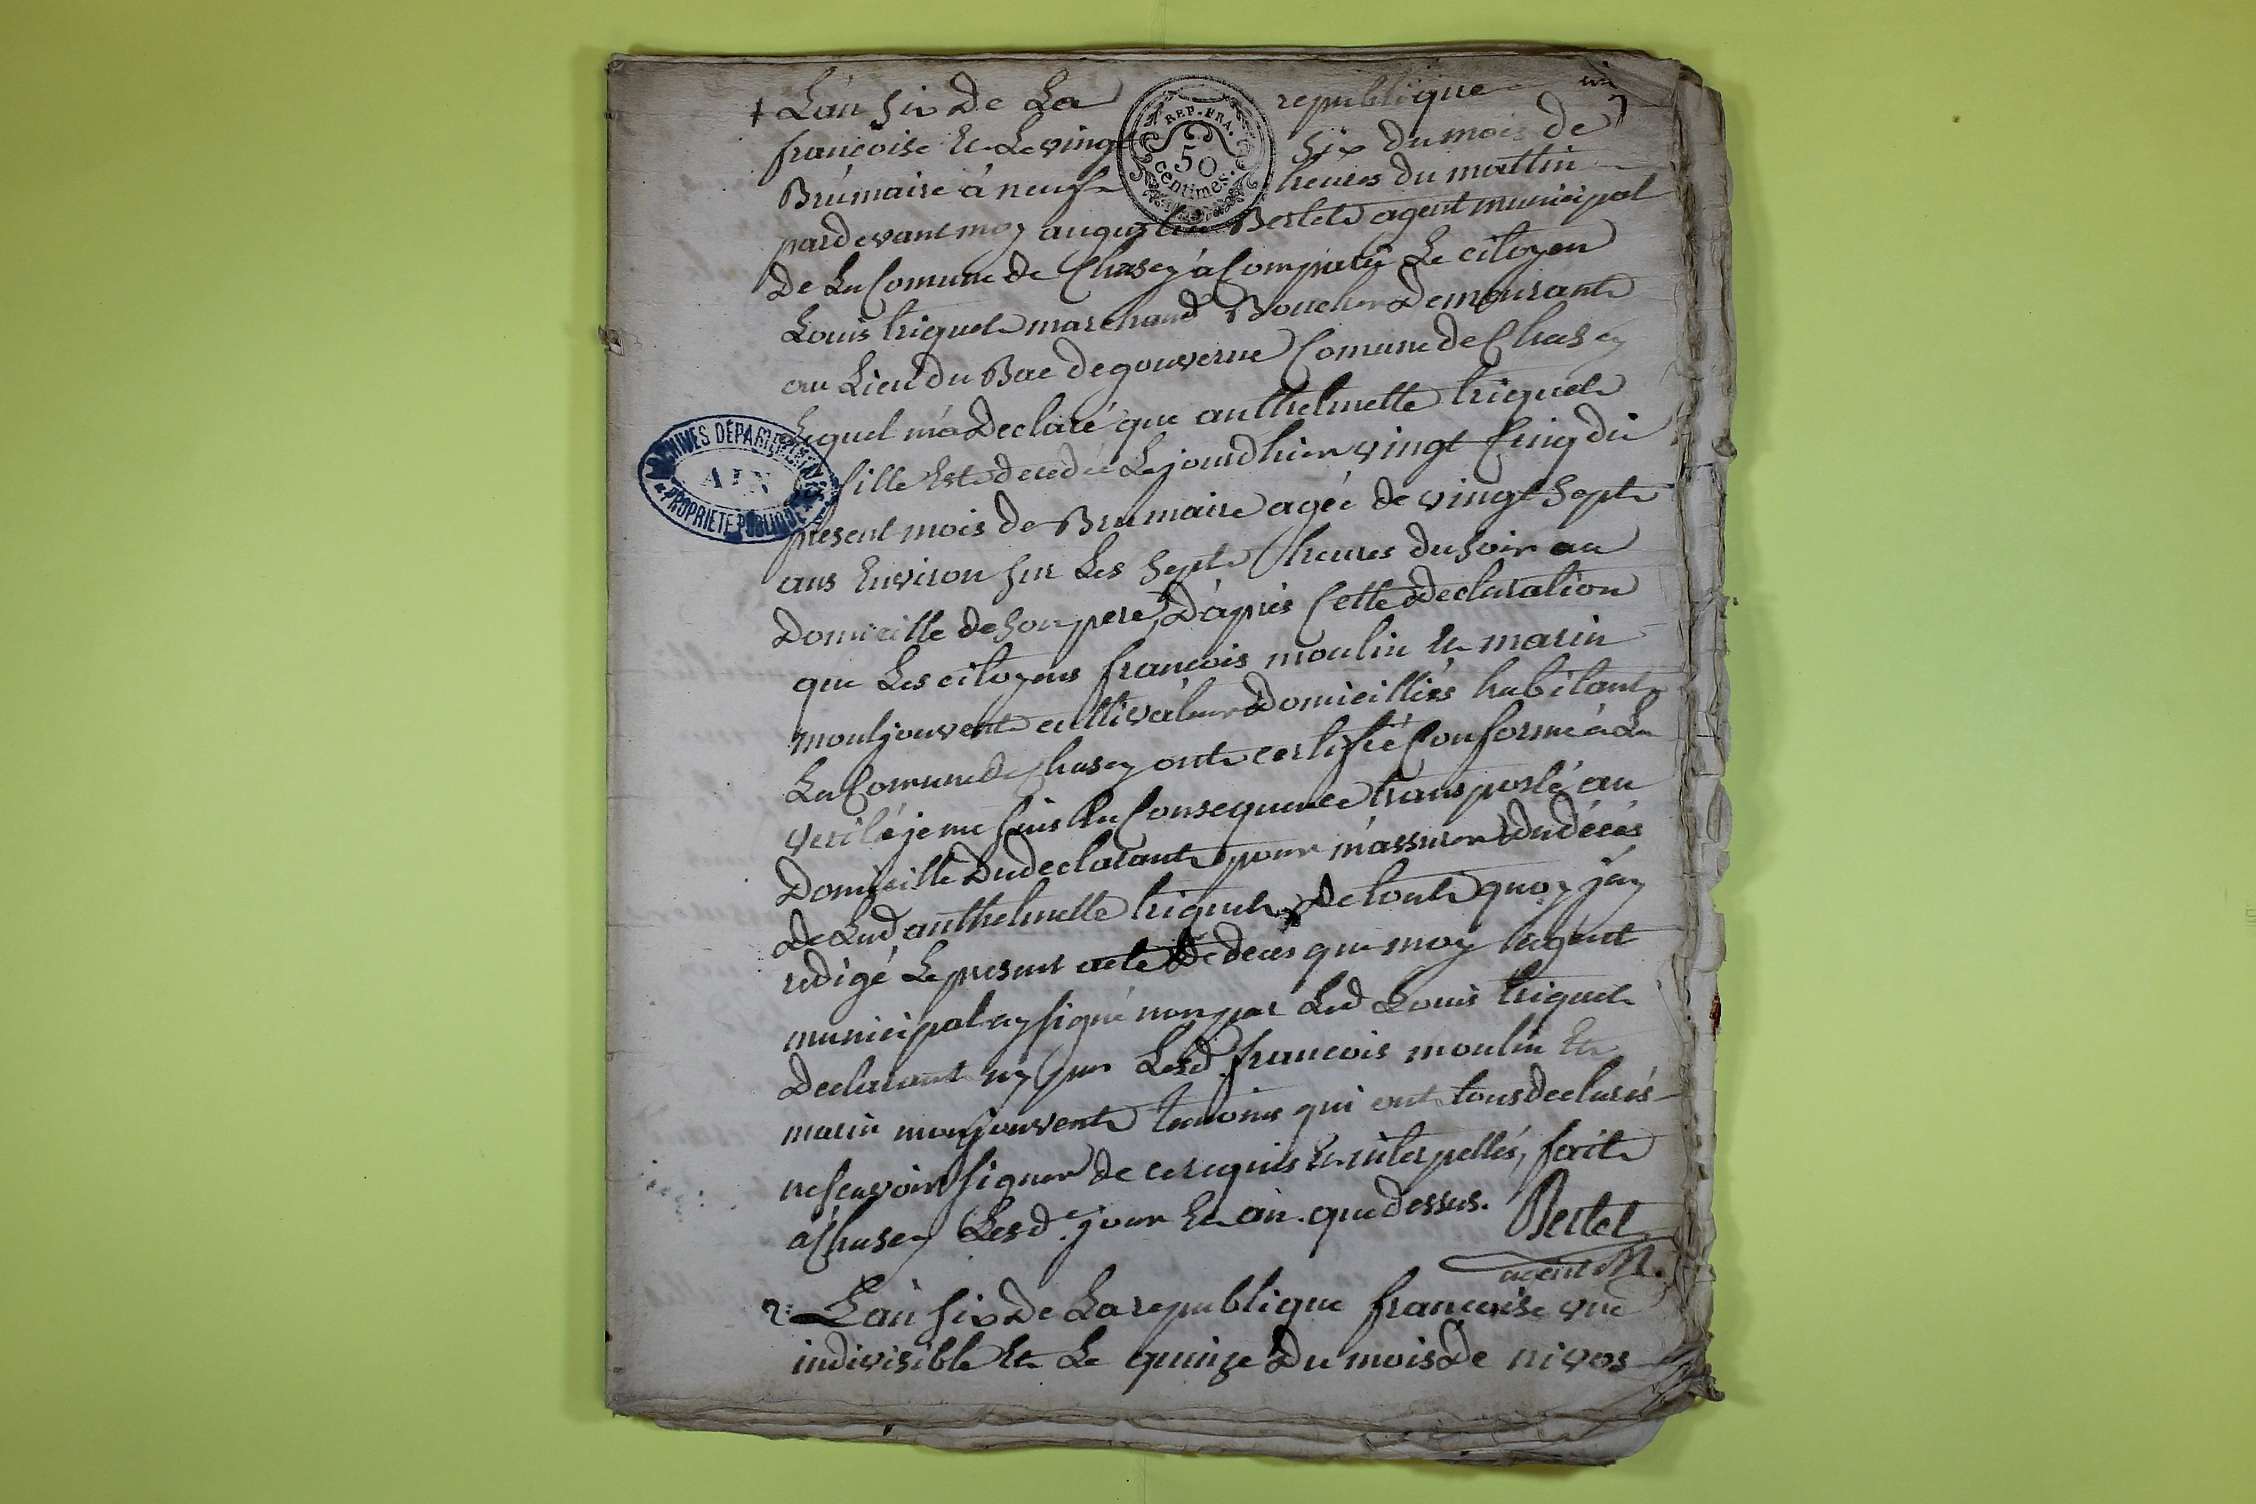 1 L'an six de La republique
francoise Et Le vingt six du mois de
Brumaire à neuf heures du mattin
pardevant moy augustin Bertet agent municipal
de La Comune de Chasey à Comparu Le citoyen
Louis triquet marchand Boucher Demeurant
au Lieu du Bac de gouverne Comune de Chasey
Lequel m'a Declaré que anthelmette triquet
sa fille Est decedée Le jourdhier vingt Cinq du
present mois de Brumaire agée de vingt Sept
ans Environ sur Les Sept heures du soir au
Domicille de son pere, D'après Cette Declaration
que Les citoyens françois moulin Et marin
montjouvent cultivateur Domicilliés habitant
La Comune de Chasey ont certifié Conforme à La
verité je me suis En Consequence transporté au
Domicille Du declarant pour m'assurer du décés
de Lad anthelmette triquet, De tout quoy j'ay
redigé Le present acte De deces que moy l'agent
municipal ay signé non pas Led Louis triquet
Declarant ny pas Lesd francois moulin Et
marin monjouvent temoins qui ont tous declarés
ne scavoir signer de ce requis Et interpellés, fait
à Chasey Lesd. jour Et an que dessus. Bertet
agent M.
2: L'an six de La republique francoise une
indivisible Et Le quinze du mois de nivos
REP. FRA.
50
centimes.
ARCHIVES DÉPARTEMENTALES
AIN
PROPRIÉTÉ PUBLIQUE